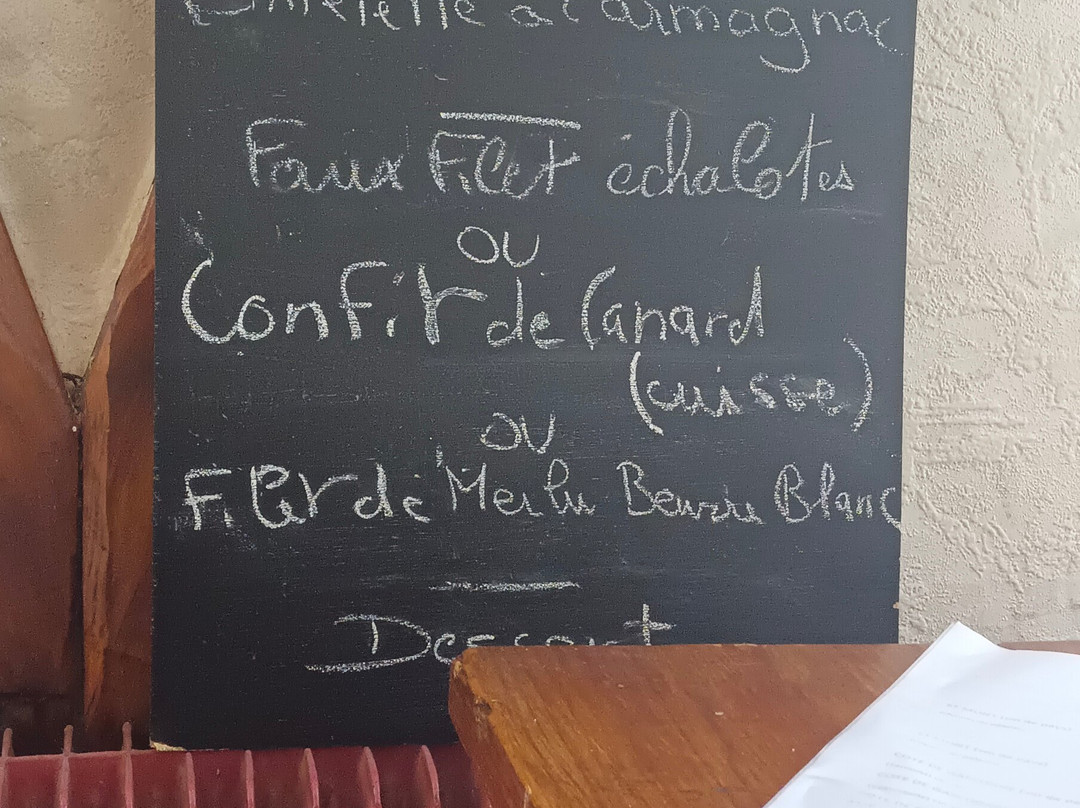 Omelette a l'armagnac
Faux Filet échalotes
ou
Confit de Canard
(cuisse)
ou
Filet de Merlu Beurre Blanc
Dessert